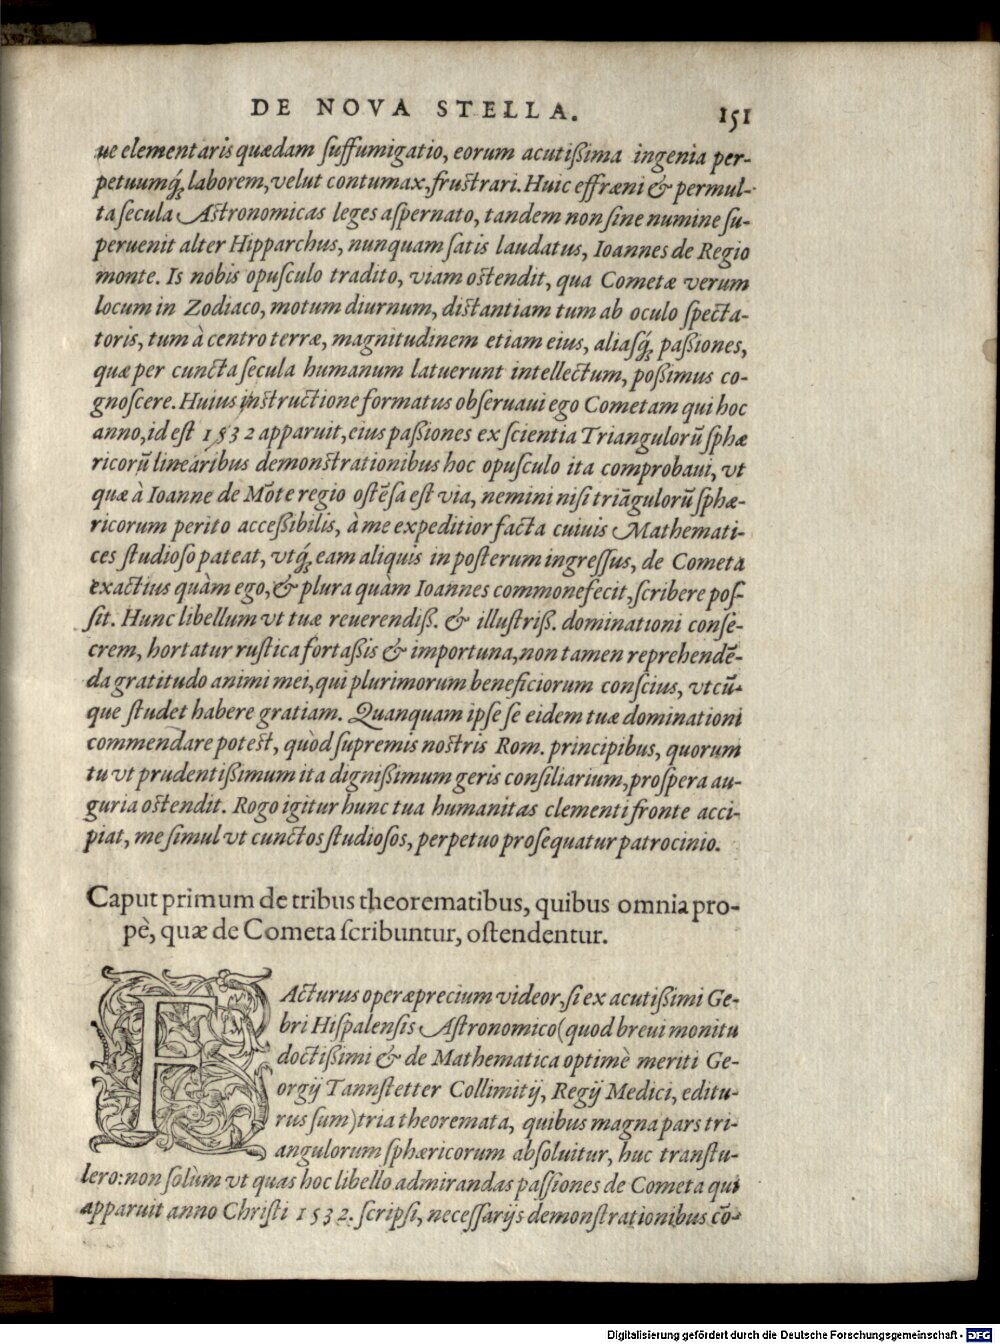 DE NOVA STELLA. 151
ue elementaris quædam ſuffumigatio, eorum acutißima ingenia per-
petuumq́; laborem, velut contumax, fruſtrari. Huic effræni & permul-
ta ſecula Aſtronomicas leges aſpernato, tandem non ſine numine ſu-
peruenit alter Hipparchus, nunquam ſatis laudatus, Ioannes de Regio
monte. Is nobis opuſculo tradito, viam oſtendit, qua Cometæ verum
locum in Zodiaco, motum diurnum, diſtantiam tum ab oculo ſpecta-
toris, tum à centro terræ, magnitudinem etiam eius, aliasq́; paßiones,
quæ per cuncta ſecula humanum latuerunt intellectum, poßimus co-
gnoſcere. Huius inſtructione formatus obſeruaui ego Cometam qui hoc
anno, id eſt 1532 apparuit, eius paßiones ex ſcientia Triangulorũ ſphæ
ricorũ linearibus demonſtrationibus hoc opuſculo ita comprobaui, vt
quæ à Ioanne de Mõte regio oſtẽſa eſt via, nemini niſi triãgulorũ ſphæ-
ricorum perito acceßibilis, à me expeditior facta cuiuis Mathemati-
ces ſtudioſo pateat, vtq́; eam aliquis in poſterum ingreſſus, de Cometa
exactius quàm ego, & plura quàm Ioannes commonefecit, ſcribere poſ-
ſit. Hunc libellum vt tuæ reuerendiß. & illuſtriß. dominationi conſe-
crem, hortatur ruſtica fortaßis & importuna, non tamen reprehendẽ-
da gratitudo animi mei, qui plurimorum beneficiorum conſcius, vtcũ-
que ſtudet habere gratiam. Quanquam ipſe ſe eidem tuæ dominationi
commendare poteſt, quòd ſupremis noſtris Rom. principibus, quorum
tu vt prudentißimum ita dignißimum geris conſiliarium, proſpera au-
guria oſtendit. Rogo igitur hunc tua humanitas clementi fronte acci-
piat, me ſimul vt cunctos ſtudioſos, perpetuo proſequatur patrocinio.
Caput primum de tribus theorematibus, quibus omnia pro-
pè, quæ de Cometa ſcribuntur, oſtendentur.
FActurus operæprecium videor, ſi ex acutißimi Ge-
bri Hiſpalenſis Aſtronomico (quod breui monitu
doctißimi & de Mathematica optimè meriti Ge-
orgij Tannſtetter Collimitij, Regij Medici, editu-
rus ſum) tria theoremata, quibus magna pars tri-
angulorum ſphæricorum abſoluitur, huc tranſtu-
lero: non ſolùm vt quas hoc libello admirandas paſſiones de Cometa qui
apparuit anno Chriſti 1532. ſcripſi, neceſſarijs demonſtrationibus cõ-
Digitalisierung gefördert durch die Deutsche Forschungsgemeinschaft - DFG